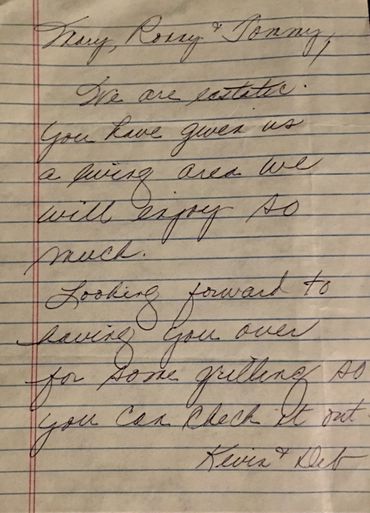 Mary, Ronny & Tommy,
We are ecstatic.
You have given us
a living area we
will enjoy so
much.
Looking forward to
having you over
for some grilling so
you can check it out.
Kevin & Deb